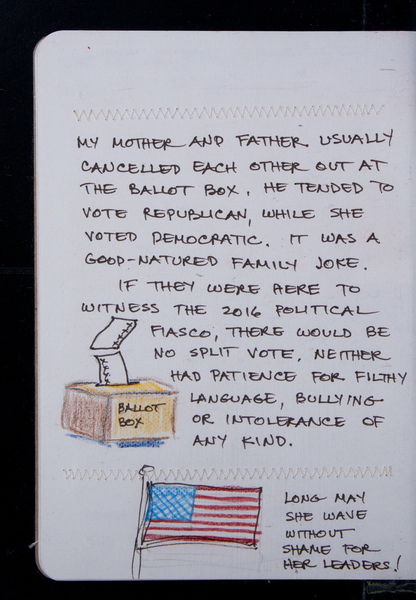 MY MOTHER AND FATHER USUALLY
CANCELLED EACH OTHER OUT AT
THE BALLOT BOX. HE TENDED TO
VOTE REPUBLICAN, WHILE SHE
VOTED DEMOCRATIC. IT WAS A
GOOD-NATURED FAMILY JOKE.
IF THEY WERE HERE TO
WITNESS THE 2016 POLITICAL
FIASCO, THERE WOULD BE
NO SPLIT VOTE. NEITHER
HAD PATIENCE FOR FILTHY
LANGUAGE, BULLYING
OR INTOLERANCE OF
ANY KIND.
BALLOT
BOX
LONG MAY
SHE WAVE
WITHOUT
SHAME FOR
HER LEADERS!